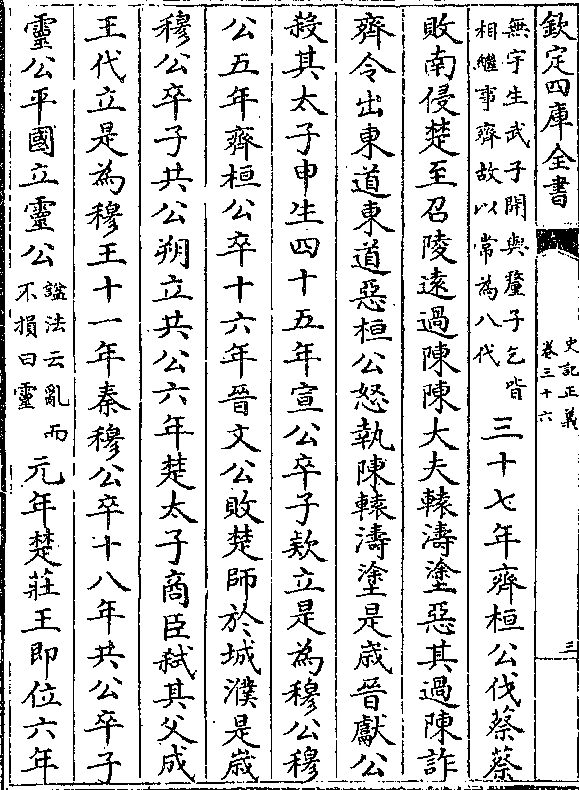 欽定四庫全書
史記正義
卷三十六
三
無宇生武子開與釐子乞皆
相繼事齊故以常為八代
三十七年齊桓公伐蔡蔡
敗南侵楚至召陵還過陳陳大夫轅濤塗惡其過陳詐
齊令出東道東道惡桓公怒執陳轅濤塗是歳晉獻公
殺其太子申生四十五年宣公卒子款立是為穆公穆
公五年齊桓公卒十六年晉文公敗楚師於城濮是歳
穆公卒子共公朔立共公六年楚太子商臣弑其父成
王代立是為穆王十一年秦穆公卒十八年共公卒子
靈公平國立靈公
諡法云亂而
不損曰靈
元年楚莊王即位六年